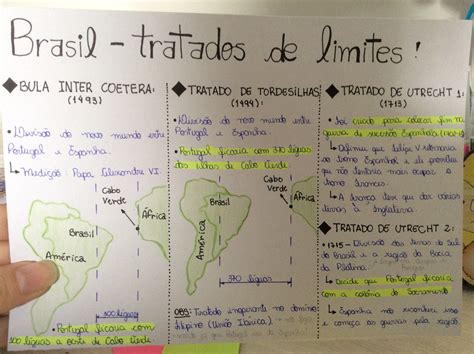 Brasil - tratados de limites!
◆ BULA INTER COETERA:
(1493)
• Divisão do novo mundo entre
Portugal e Espanha.
↳ Medição: Papa Alexandre VI.
Cabo
Verde
África
Brasil
América
100 léguas
• Portugal ficaria com
100 léguas a oeste de Cabo Verde
◆ TRATADO DE TORDESILHAS
(1494):
• Divisão do novo mundo entre
Portugal e Espanha.
• Portugal ficaria com 370 léguas
das ilhas de Cabo Verde
Cabo
Verde
África
Brasil
América
370 léguas
OBS: Tratado inoperante no domínio
filipino (União Ibérica)
◆ TRATADO DE UTRECHT 1:
(1713)
• Foi criado para colocar fim na
guerra de sucessão Espanhola
↳ Afirmou que Felipe V assumiria
ao trono Espanhol e ele prometeu
que não tentaria mais ocupar o
trono francês.
↳ A França teve que dar vários
à Inglaterra.
◆ TRATADO DE UTRECHT 2:
• 1715 - Divisão das terras do Sul
do Brasil e a região da Bacia
da Platina.
↳ Decide que Portugal ficaria
com a colônia do Sacramento
↳ Espanha não reconhece isso
e começa as guerras pela região.